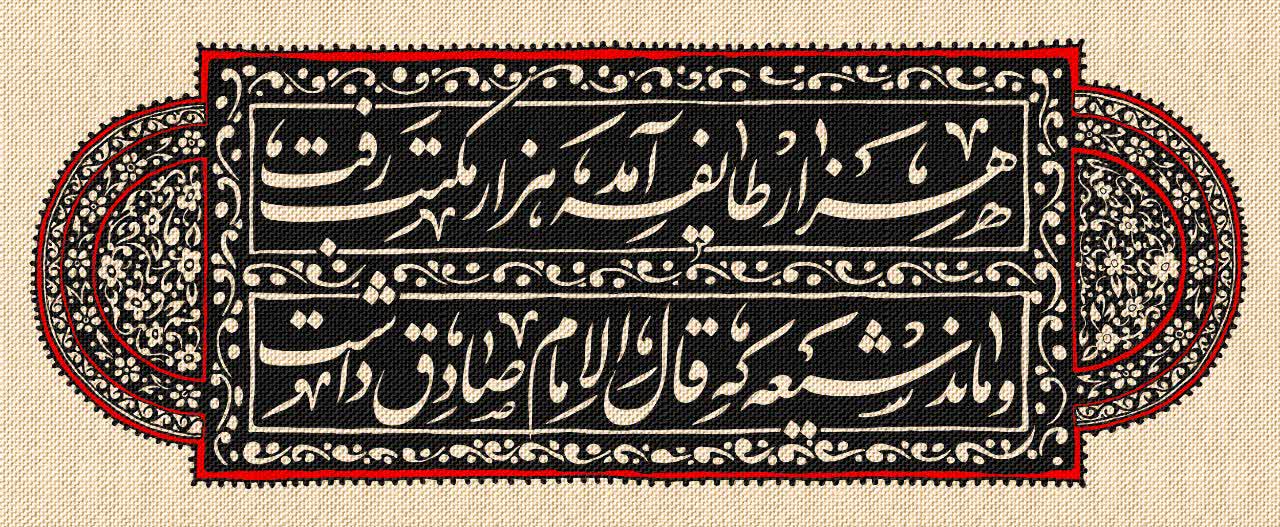 هزار طایفه آمد هزار مکتب رفت
و ماند شیعه که قال الامام صادق داشت